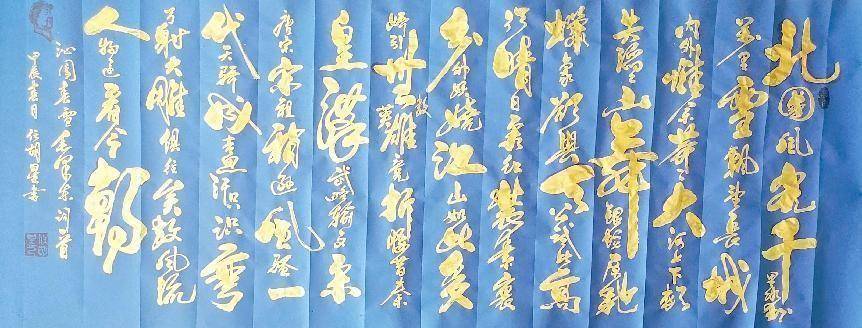 北国风光千里冰封
万里雪飘望长城
内外惟余莽莽大河上下顿
失滔滔山舞银蛇原驰
蜡象欲与天公试比高
须晴日看红装素裹
分外妖娆江山如此多
娇引无数英雄竞折腰惜秦
皇汉武略输文采
唐宗宋祖稍逊风骚一
代天骄成吉思汗只识弯
弓射大雕俱往矣数风流
人物还看今朝
沁园春雪毛泽东词一首
甲辰春月